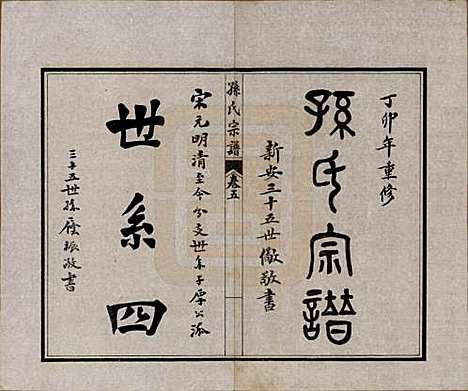 丁卯年重修
孫氏宗譜
新安三十五世儆敬書
孫氏宗譜 卷五
宋元明清至今分支世系子厚公派
世系四
三十五世孫 振敬書